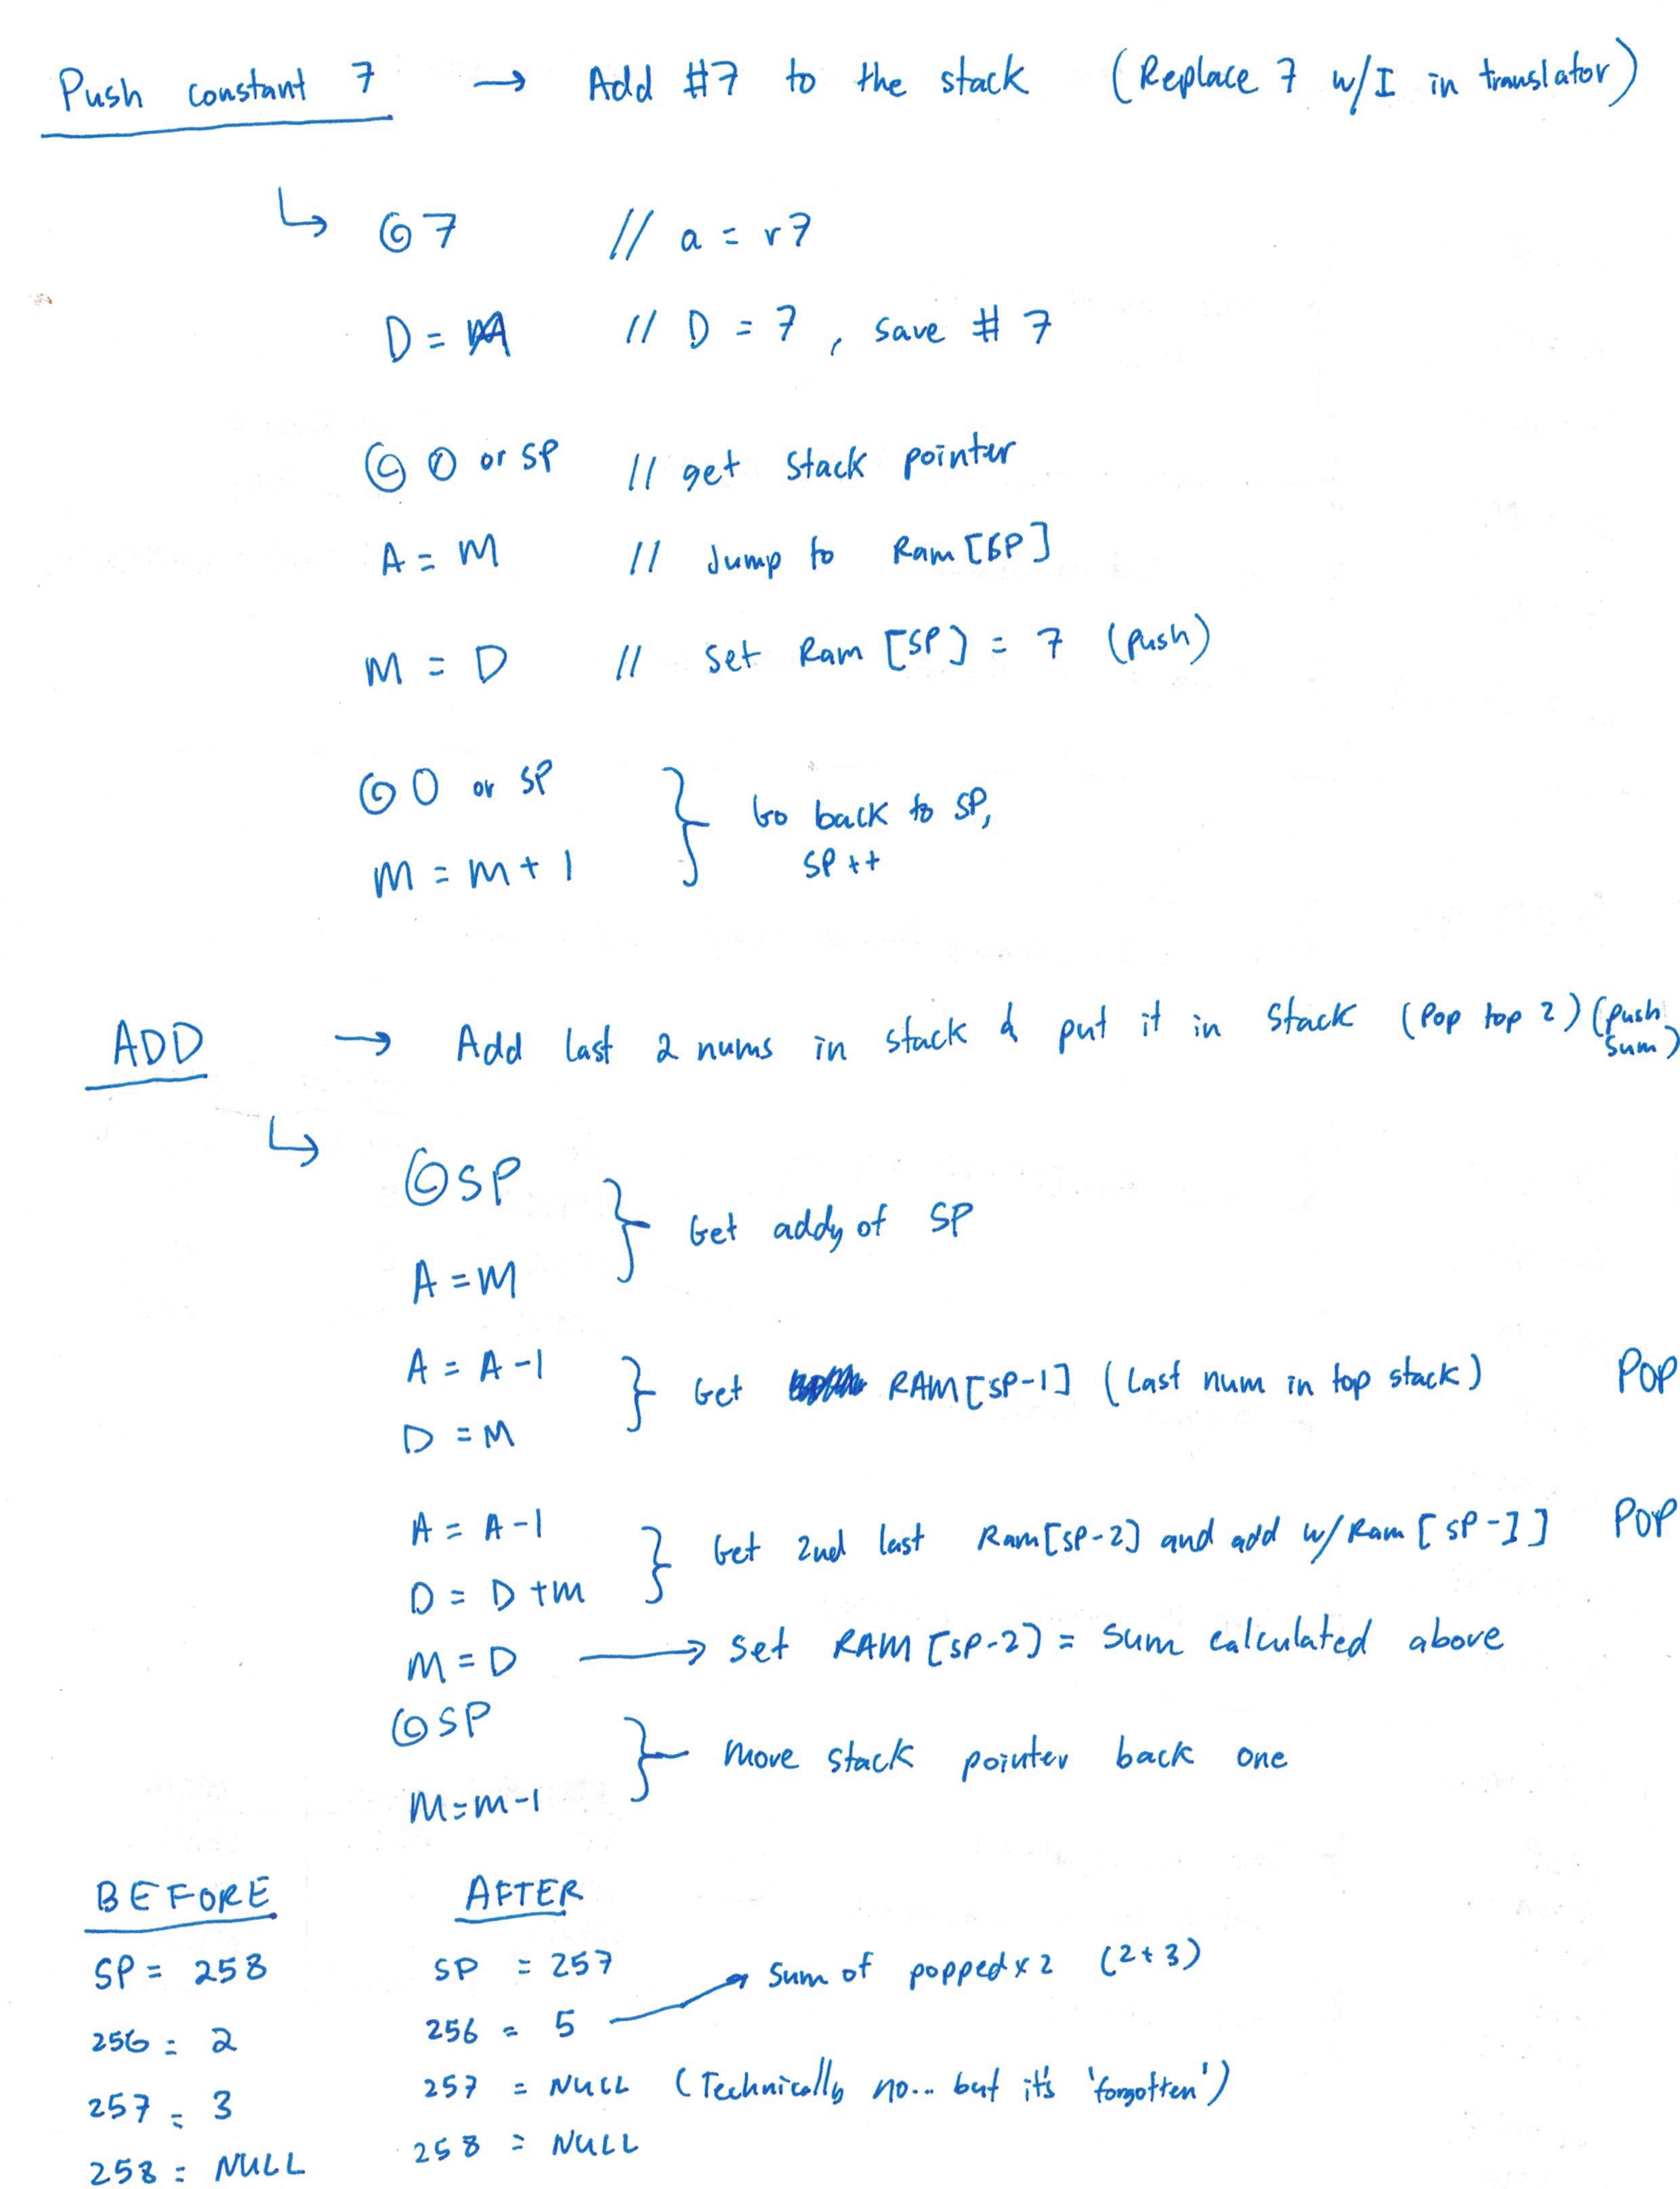 Push constant 7 → Add #7 to the stack (Replace 7 w/I in translator)
↳ @7 // a = r7
D = A // D = 7, save # 7
@ 0 or SP // get stack pointer
A = M // Jump to Ram[SP]
M = D // Set Ram [SP] = 7 (push)
@0 or SP } Go back to SP,
M = M + 1 SP++
ADD → Add last 2 nums in stack & put it in stack (Pop top 2) (push sum)
↳ @SP
A = M } Get addy of SP
A = A-1
D = M } Get RAM[SP-1] (Last num in top stack) POP
A = A-1
D = D+M } Get 2nd last Ram[SP-2] and add w/Ram[SP-1] POP
M = D → Set RAM[SP-2] = sum calculated above
@SP
M=M-1 } Move stack pointer back one
BEFORE AFTER
SP = 258 SP = 257
256 = 2 256 = 5 → Sum of popped x 2 (2+3)
257 = 3 257 = NULL (Technically no... but it's 'forgotten')
258 = NULL 258 = NULL